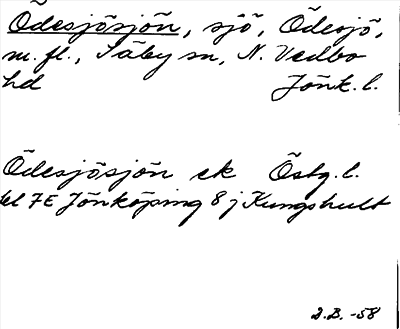 Ödesjösjön, sjö, Ödesjö,
m.fl., Säby sn, N. Vedbo
hd Jönk.l.
Ödesjösjön ek Östg.l.
bl 7E Jönköping 8 j Kungshult
2.B. -58